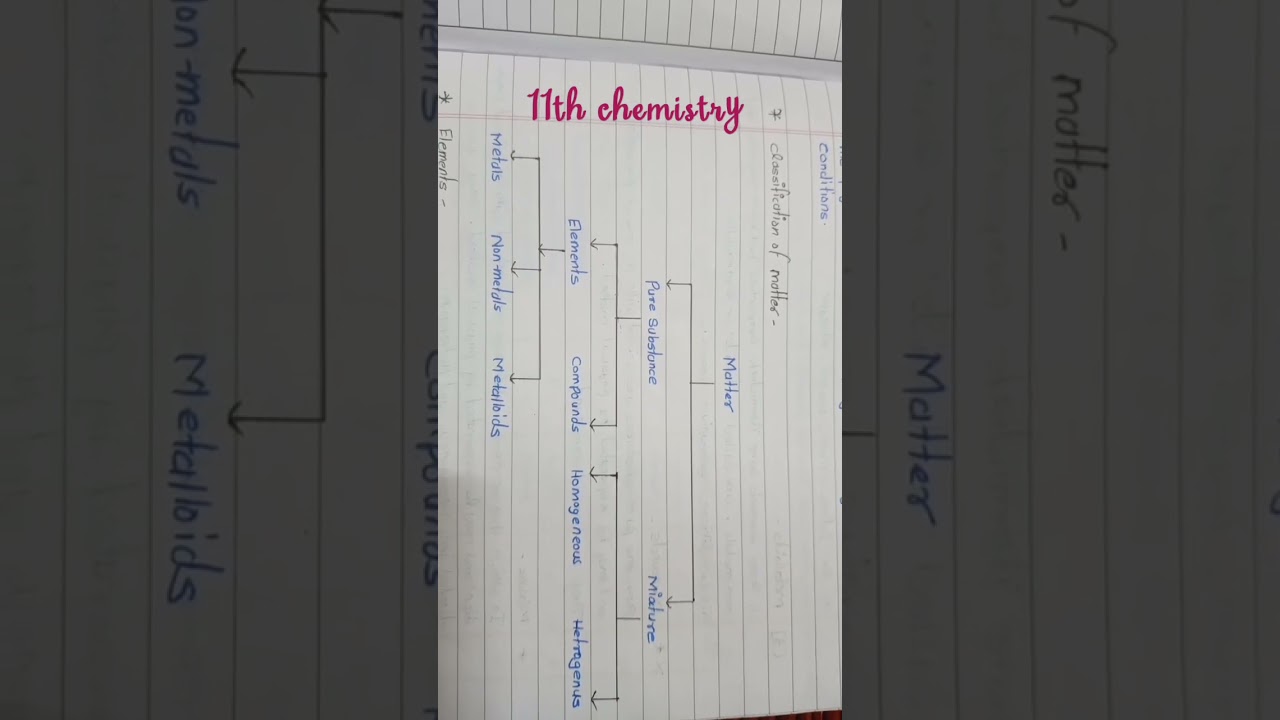 11th chemistry
conditions.
* classification of matter -
Matter
Pure Substance Mixture
Elements Compounds Homogeneous Hetragenus
Metals Non-metals Metalloids
* Elements -